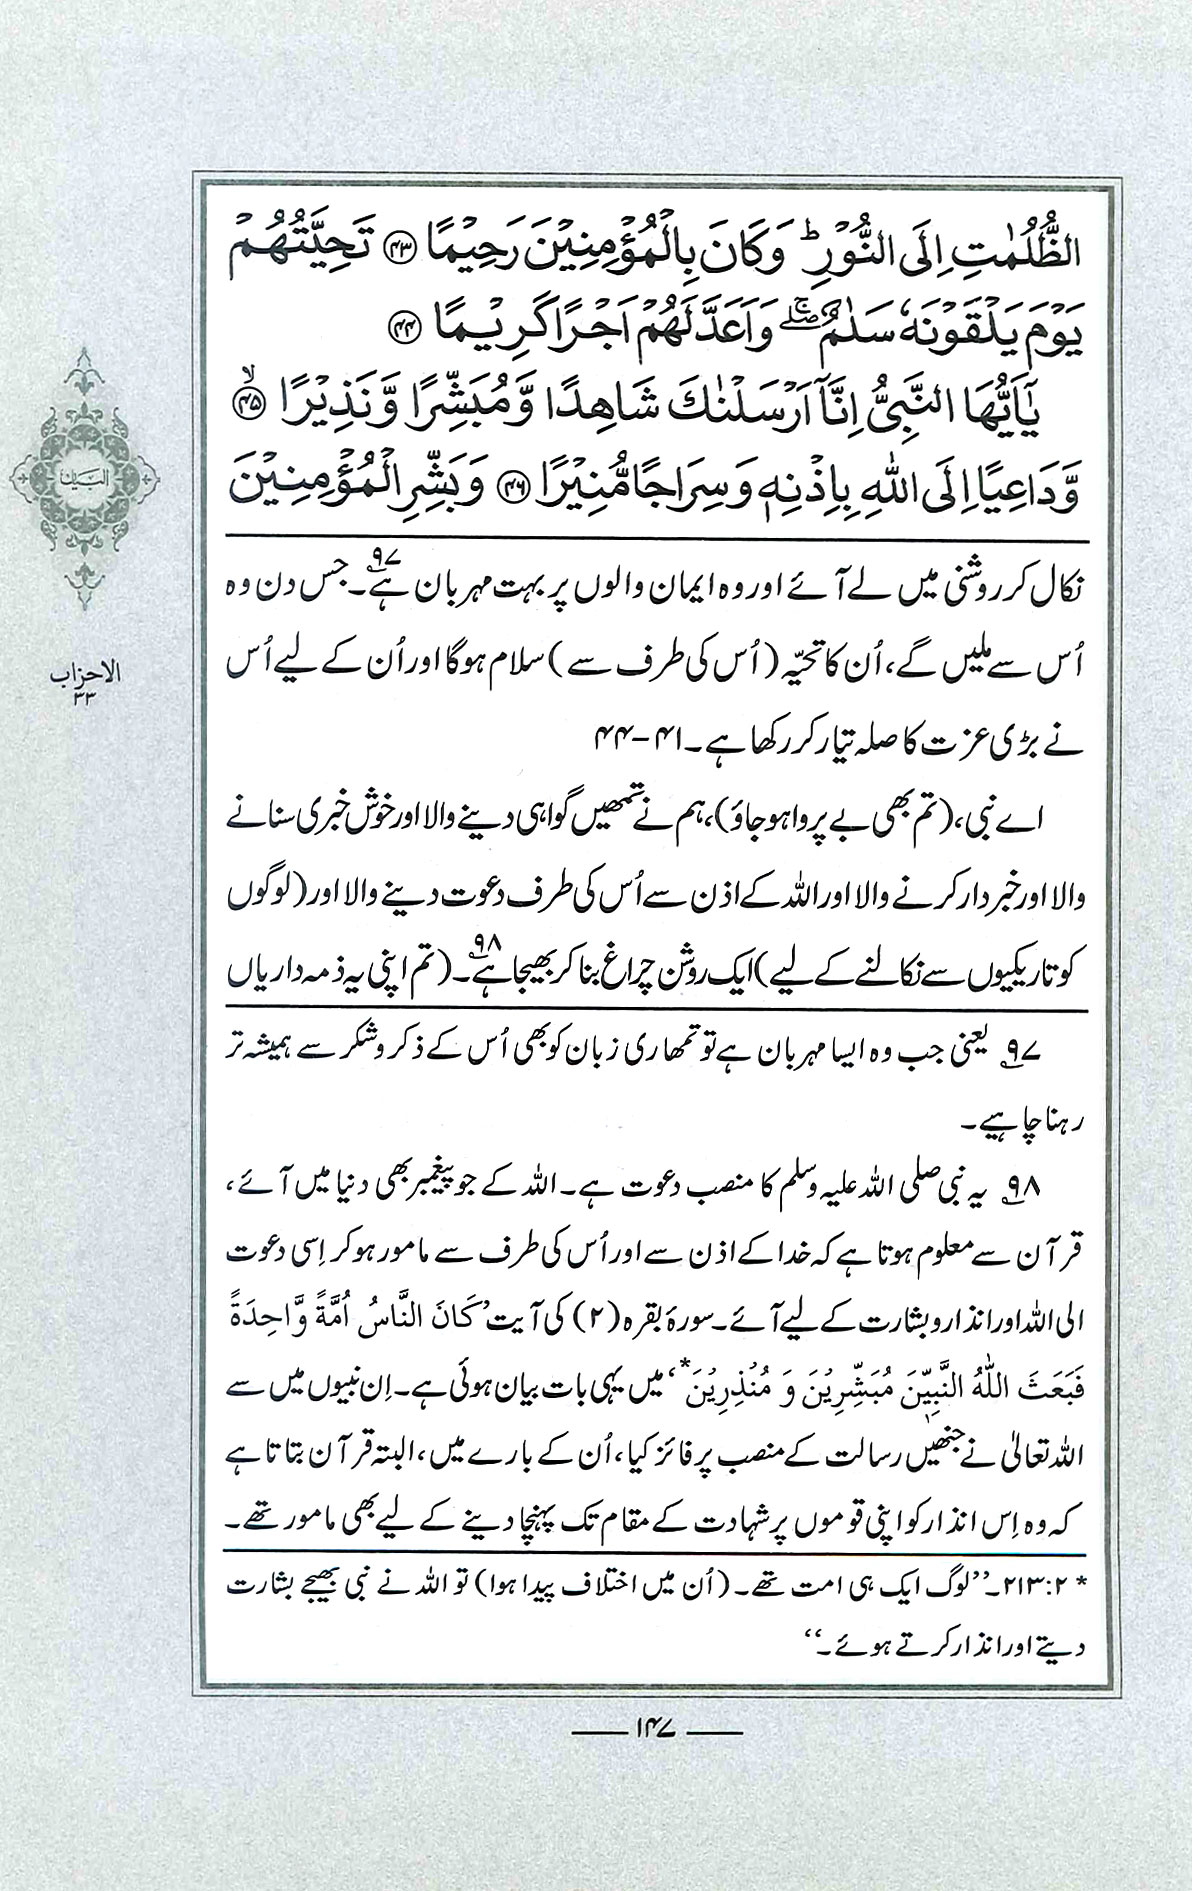 الظُّلُمٰتِ اِلَى النُّوْرِؕ وَكَانَ بِالْمُؤْمِنِيْنَ رَحِيْمًا ﴿۴۳﴾ تَحِيَّتُهُمْ
يَوْمَ يَلْقَوْنَهٗ سَلٰمٌ ۖۚ وَاَعَدَّ لَهُمْ اَجْرًا كَرِيْمًا ﴿۴۴﴾
يٰۤاَيُّهَا النَّبِىُّ اِنَّاۤ اَرْسَلْنٰكَ شَاهِدًا وَّمُبَشِّرًا وَّنَذِيْرًا ﴿۴۵﴾ۙ
وَّدَاعِيًا اِلَى اللّٰهِ بِاِذْنِهٖ وَسِرَاجًا مُّنِيْرًا ﴿۴۶﴾ وَبَشِّرِ الْمُؤْمِنِيْنَ
نکال کر روشنی میں لے آئے اور وہ ایمان والوں پر بہت مہربان ہے۹۷۔ جس دن وہ
اُس سے ملیں گے، اُن کا تحیّہ (اُس کی طرف سے) سلام ہوگا اور اُن کے لیے اُس
نے بڑی عزت کا صلہ تیار کر رکھا ہے۔ ۴۱-۴۴
اے نبی، (تم بھی بے پروا ہو جاؤ)، ہم نے تمھیں گواہی دینے والا اور خوش خبری سنانے
والا اور خبردار کرنے والا اور اللہ کے اذن سے اُس کی طرف دعوت دینے والا اور (لوگوں
کو تاریکیوں سے نکالنے کے لیے) ایک روشن چراغ بنا کر بھیجا ہے۹۸۔ (تم اپنی یہ ذمہ داریاں
۹۷ یعنی جب وہ ایسا مہربان ہے تو تمھاری زبان کو بھی اُس کے ذکر و شکر سے ہمیشہ تر
رہنا چاہیے۔
۹۸ یہ نبی صلی اللہ علیہ وسلم کا منصب دعوت ہے۔ اللہ کے جو پیغمبر بھی دنیا میں آئے،
قرآن سے معلوم ہوتا ہے کہ خدا کے اذن سے اور اُس کی طرف سے مامور ہو کر اِسی دعوت
الی اللہ اور انذار و بشارت کے لیے آئے۔ سورۂ بقرہ (۲) کی آیت ’كَانَ النَّاسُ اُمَّةً وَّاحِدَةً
فَبَعَثَ اللّٰهُ النَّبِيّٖنَ مُبَشِّرِيْنَ وَ مُنْذِرِيْنَ*‘ میں یہی بات بیان ہوئی ہے۔ اِن نبیوں میں سے
اللہ تعالیٰ نے جنھیں رسالت کے منصب پر فائز کیا، اُن کے بارے میں، البتہ قرآن بتاتا ہے
کہ وہ اِس انذار کو اپنی قوموں پر شہادت کے مقام تک پہنچا دینے کے لیے بھی مامور تھے۔
* ۲: ۲۱۳۔ ’’لوگ ایک ہی امت تھے۔ (اُن میں اختلاف پیدا ہوا) تو اللہ نے نبی بھیجے بشارت
دیتے اور انذار کرتے ہوئے۔‘‘
البیان
الاحزاب
۳۳
۱۴۷